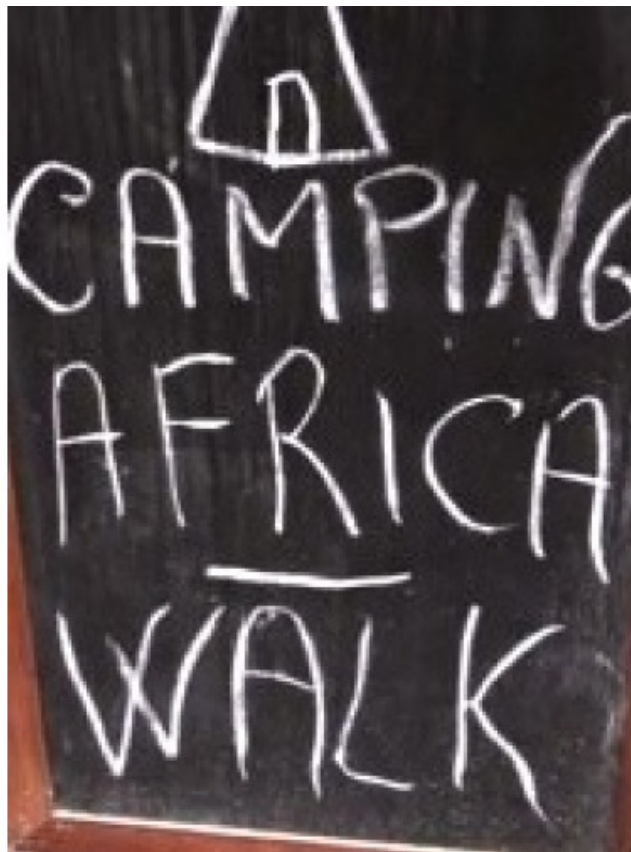 CAMPING
AFRICA
WALK